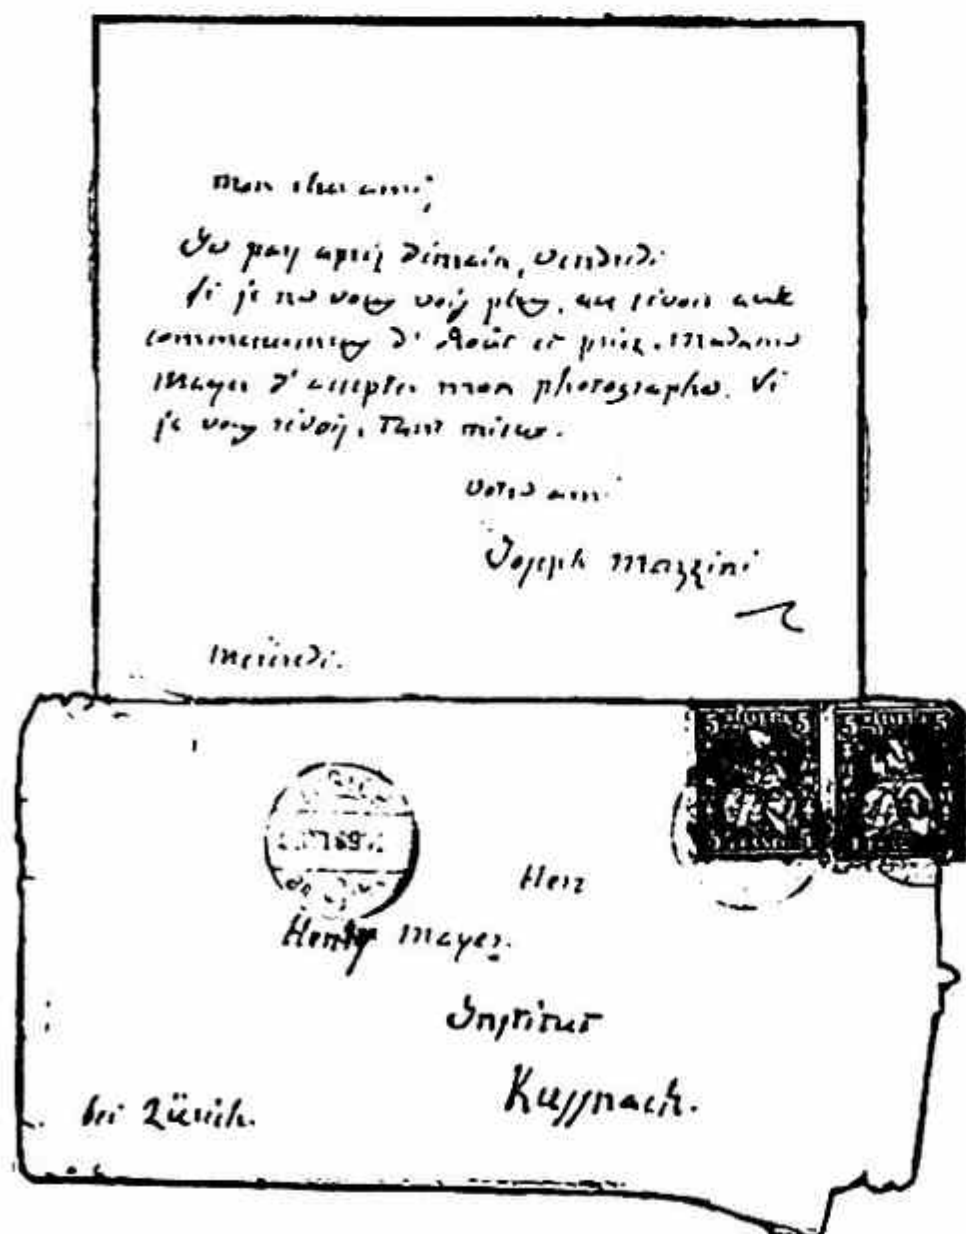 mon cher ami,
Je pars après demain, vendredi
Si je ne vous vois plus, au revoir aux
commencement d'Août et priez Madame
Mayer d'accepter mon photographe. Si
je vous revois, tant mieux.
votre ami
Joseph Mazzini
mercredi.
5 5 5 5
Herr
Henry Mayer.
Institut
Kussnach.
bei Zürich.